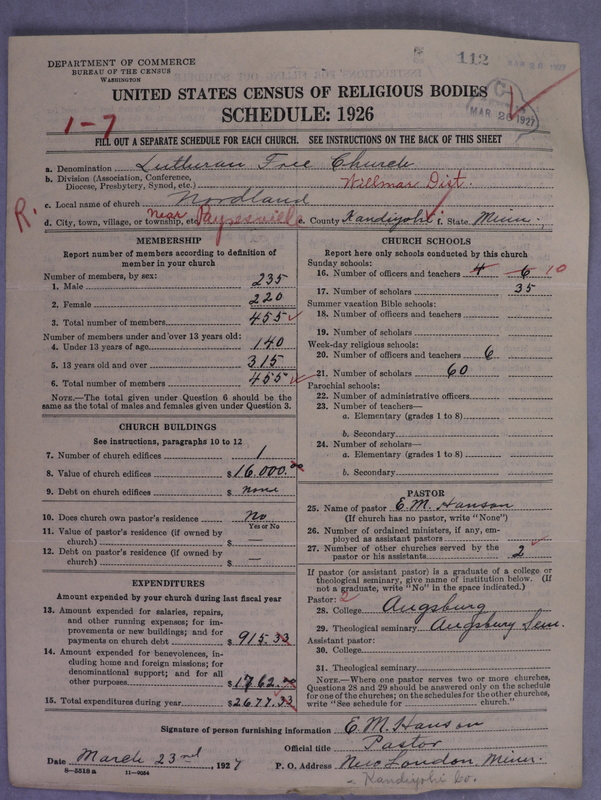 DEPARTMENT OF COMMERCE
BUREAU OF THE CENSUS
WASHINGTON
112
MAR 26 1927
UNITED STATES CENSUS OF RELIGIOUS BODIES
SCHEDULE: 1926
1-7
FILL OUT A SEPARATE SCHEDULE FOR EACH CHURCH. SEE INSTRUCTIONS ON THE BACK OF THIS SHEET
a. Denomination Lutheran Free Church
b. Division (Association, Conference, Diocese, Presbytery, Synod, etc.) Willmar Dist.
c. Local name of church Nordland
R. d. City, town, village, or township, etc. near Paynesville e. County Kandiyohi f. State Minn.
MEMBERSHIP
Report number of members according to definition of
member in your church
Number of members, by sex:
1. Male 235
2. Female 220
3. Total number of members 455
Number of members under and over 13 years old:
4. Under 13 years of age 140
5. 13 years old and over 315
6. Total number of members 455
NOTE.—The total given under Question 6 should be the
same as the total of males and females given under Question 3.
CHURCH BUILDINGS
See instructions, paragraphs 10 to 12
7. Number of church edifices 1
8. Value of church edifices $16,000.00
9. Debt on church edifices $ none
10. Does church own pastor's residence No
Yes or No
11. Value of pastor's residence (if owned by
church) $ —
12. Debt on pastor's residence (if owned by
church) $ —
EXPENDITURES
Amount expended by your church during last fiscal year
13. Amount expended for salaries, repairs,
and other running expenses; for im-
provements or new buildings; and for
payments on church debt $ 915.33
14. Amount expended for benevolences, in-
cluding home and foreign missions; for
denominational support; and for all
other purposes $1762.00
15. Total expenditures during year $2677.33
CHURCH SCHOOLS
Report here only schools conducted by this church
Sunday schools:
16. Number of officers and teachers 4 6 10
17. Number of scholars 35
Summer vacation Bible schools:
18. Number of officers and teachers
19. Number of scholars
Week-day religious schools:
20. Number of officers and teachers 6
21. Number of scholars 60
Parochial schools:
22. Number of administrative officers
23. Number of teachers—
a. Elementary (grades 1 to 8)
b. Secondary
24. Number of scholars—
a. Elementary (grades 1 to 8)
b. Secondary
PASTOR
25. Name of pastor E. M. Hanson
(If church has no pastor, write "None")
26. Number of ordained ministers, if any, em-
ployed as assistant pastors
27. Number of other churches served by the
pastor or his assistants 2
If pastor (or assistant pastor) is a graduate of a college or
theological seminary, give name of institution below. (If
not a graduate, write "No" in the space indicated.)
Pastor: 2
28. College Augsburg
29. Theological seminary Augsburg Sem.
Assistant pastor:
30. College
31. Theological seminary
NOTE.—Where one pastor serves two or more churches,
Questions 28 and 29 should be answered only on the schedule
for one of the churches; on the schedules for the other churches,
write "See schedule for church."
Signature of person furnishing information E. M. Hanson
Official title Pastor
Date March 23rd, 1927 P. O. Address New London, Minn.
8—5518 a 11—9054
- Kandiyohi Co.